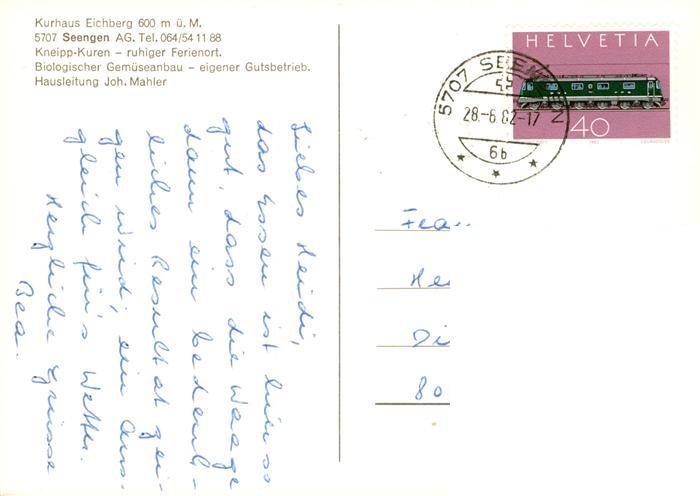 Kurhaus Eichberg 600 m ü. M.
5707 Seengen AG. Tel. 064/54 11 88
Kneipp-Kuren – ruhiger Ferienort.
Biologischer Gemüseanbau – eigener Gutsbetrieb.
Hausleitung Joh. Mahler
Liebes Heidi,
das Essen ist hier so
gut, dass die Waage
dann ein bedenk-
liches Resultat zei-
gen wird; ein Aus-
gleich für's Wetter.
Herzliche Grüsse
Bea.
HELVETIA
40
5707 SEENGEN
28.-6.82-17
6b
Frau
He
Di
80